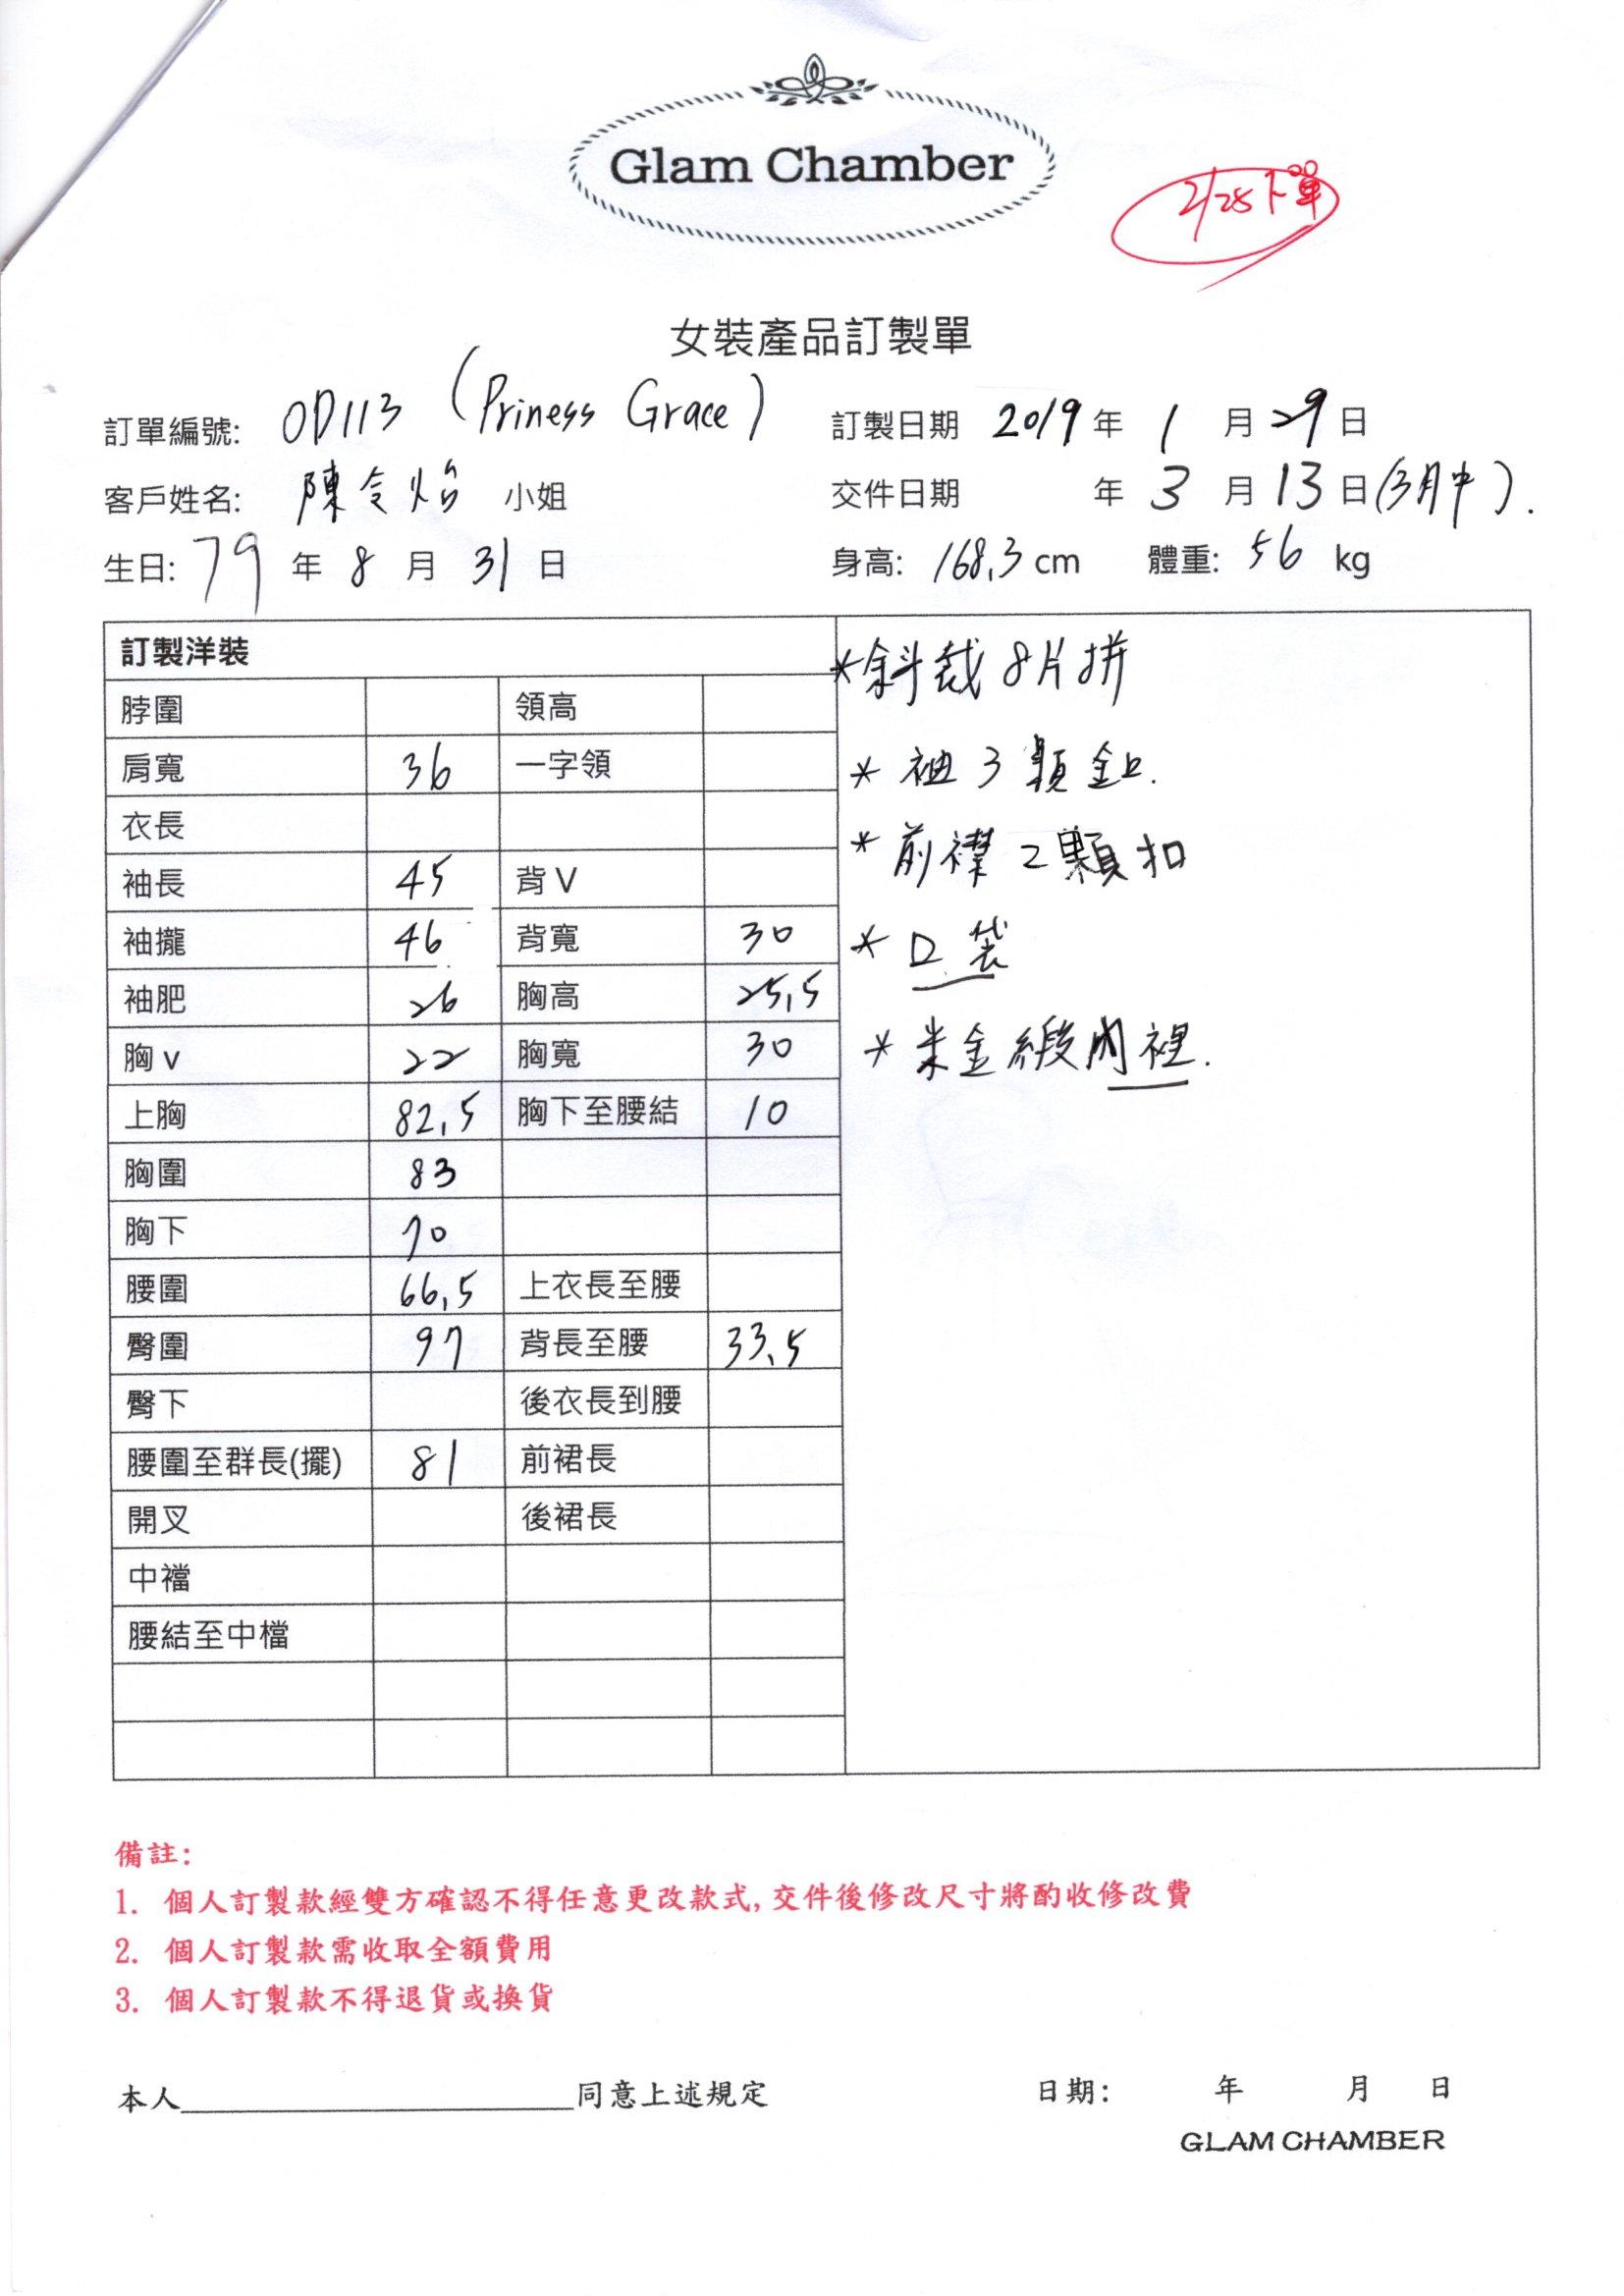 Glam Chamber
2/25下單
女裝產品訂製單
訂單編號: OD113 (Priness Grace)
訂製日期 2019 年 1 月 29 日
客戶姓名: 陳令怡 小姐
交件日期 年 3 月 13 日 (3月中).
生日: 79 年 8 月 31 日
身高: 168.3 cm 體重: 56 kg
訂製洋裝
脖圍 領高
肩寬 36 一字領
衣長
袖長 45 背V
袖攏 46 背寬 30
袖肥 26 胸高 25.5
胸v 22 胸寬 30
上胸 82.5 胸下至腰結 10
胸圍 83
胸下 70
腰圍 66.5 上衣長至腰
臀圍 97 背長至腰 33.5
臀下 後衣長到腰
腰圍至群長(擺) 81 前裙長
開叉 後裙長
中襠
腰結至中檔
*斜裁8片拼
* 袖3顆釦.
* 前襟2顆扣
* 口袋
* 米金緞內裡.
備註:
1. 個人訂製款經雙方確認不得任意更改款式, 交件後修改尺寸將酌收修改費
2. 個人訂製款需收取全額費用
3. 個人訂製款不得退貨或換貨
本人____________同意上述規定 日期: 年 月 日
GLAM CHAMBER